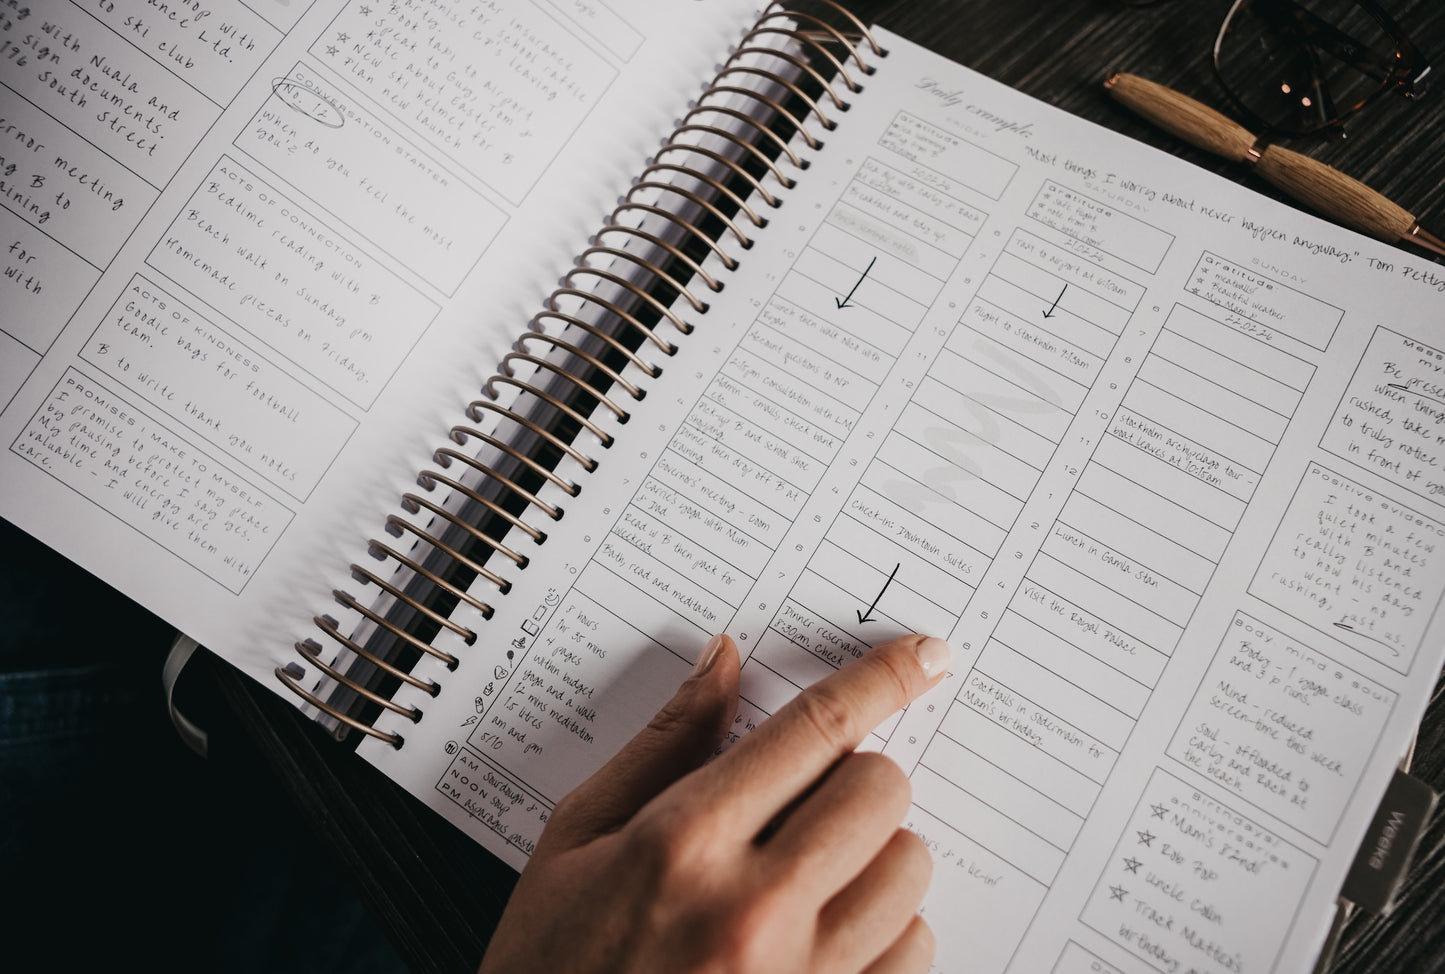 shop with
ance Ltd.
to ski club
ng with Nuala and
to sign documents.
196 South Street
ernor meeting
ng B to
aining
for
with
car insurance
Organise for school raffle
GP's leaving
party.
Book taxi to airport
Speak to Guy, Tom &
Kate about Easter
New ski helmet for B
Plan new launch
CONVERSATION STARTER
No. 12
When do you feel the most
you'?
ACTS OF CONNECTION
Bedtime reading with B
Beach walk on Sunday pm
Homemade pizzas on Friday.
ACTS OF KINDNESS
Goodie bags for football
team.
B to write thank you notes
PROMISES I MAKE TO MYSELF
I promise to protect my peace
by pausing before I say yes.
My time and energy are
valuable – I will give them with
care.
Daily example:
"Most things I worry about never happen anyway." Tom Petty
FRIDAY
Gratitude
20.02.26
6
7
8
9
10
11
12
1
2
3
4
5
6
7
8
9
10
Sea dip with Carly & Zach
at 6:20am
Breakfast and tidy up.
Lunch then walk Nico with
Ryan
Account questions to NP
2:15pm Consultation with L.M.
Admin – emails, check bank
etc.
Pick-up B and school shoe
shopping.
Dinner then drop off B at
training.
Governors' meeting – zoom
Carrie's yoga with Mum
& Dad
Read w B then pack for
weekend.
Bath, read and meditation
8 hours
1hr 35 mins
4 pages
within budget
yoga and a walk
12 mins meditation
1.5 litres
am and pm
5/10
AM Sourdough &
NOON soup
PM asparagus pasta
SATURDAY
Gratitude
safe flight
note from B
21.02.26
6
7
8
9
10
11
12
1
2
3
4
5
6
7
8
9
Taxi to airport at 6:10am
Flight to Stockholm 9:15am
Check-in: Downtown Suites
Dinner reservation
8:30pm. Check
SUNDAY
Gratitude:
meatballs!
Beautiful weather
22.02.26
6
7
8
9
10
11
12
1
2
3
4
5
6
7
8
9
Stockholm archipelago tour –
boat leaves at 10:15am
Lunch in Gamla Stan
Visit the Royal Palace
Cocktails in Södermalm for
Mam's birthday.
hours & a lie-in!
Be present
when things
rushed, take
to truly notice
in front of
Positive evidence
I took a few
quiet minutes
with B and
really listened
to how his day
went – no
rushing, just us.
Body mind & soul
Body – 1 yoga class
and 3 x runs.
Mind – reduced
screen-time this week.
Soul – offloaded to
Carly and Zach at
the beach.
Birthdays/
anniversaries
Mam's 82nd!
Rob Pop
Uncle Colin
Track Matteo's
birthday
Weeks